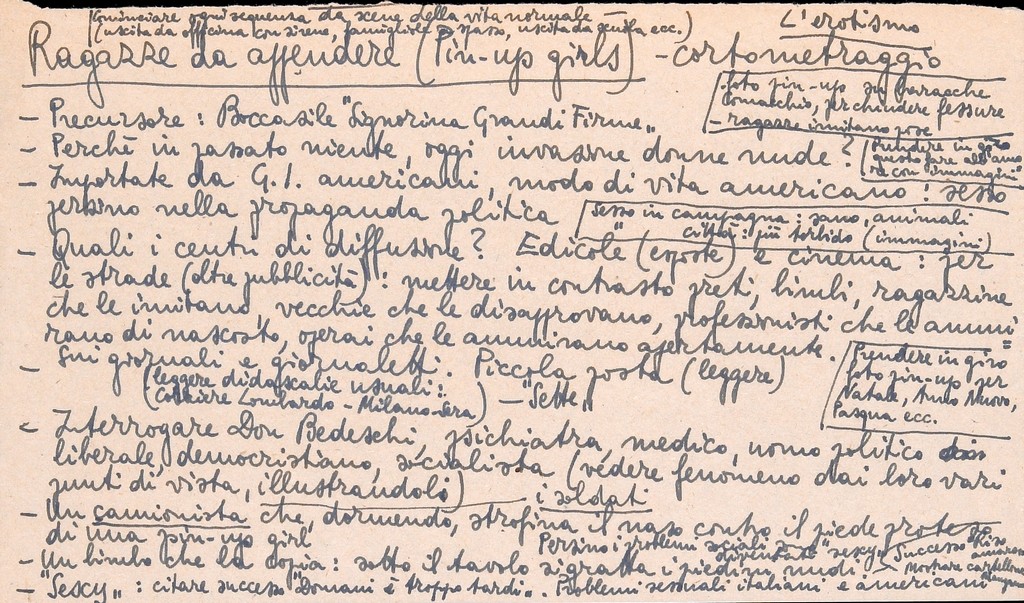 Cominciare ogni sequenza da scene della vita normale
(uscita da officina con sirene, famigliole a spasso, uscita da scuola ecc.)
L'erotismo
Ragazze da appendere (Pin-up girls) - cortometraggio
foto pin-up su baracche
Comacchio, per chiudere fessure
- ragazze imitano pose
- Precursore: Boccasile "Signorina Grandi Firme"
- Perchè in passato niente, oggi invasione donne nude?
Prendere in giro
questo fare all'amo
re con immagini
- Importate da G.I. americani, modo di vita americano: sesso
persino nella propaganda politica
Sesso in campagna: sano, animali
città: più torbido (immagini)
- Quali i centri di diffusione? Edicole (esposte) e cinema: per
le strade (oltre pubblicità): mettere in contrasto preti, bimbi, ragazzine
che le imitano, vecchie che le disapprovano, professionisti che le ammi
rano di nascosto, operai che le ammirano apertamente.
- Sui giornali e giornaletti. Piccola posta (leggere)
(leggere didascalie usuali:
Corriere Lombardo - Milano-Sera) - "Sette"
Prendere in giro
foto pin-up per
Natale, Anno Nuovo,
Pasqua ecc.
- Interrogare Don Bedeschi, psichiatra, medico, uomo politico
liberale, democristiano, socialista (vedere fenomeno dai loro vari
punti di vista, illustrandoli)
i soldati
- Un camionista che, dormendo, strofina il naso contro il piede proteso
di una pin-up girl
Persino i problemi sociali
diventano "sexy"
Successo Riso
amaro
- Mostrare cartellone
- Un bimbo che la copia: sotto il tavolo si gratta i piedini nudi
- "Sexy": citare successo "Domani è troppo tardi". Problemi sessuali italiani e americani